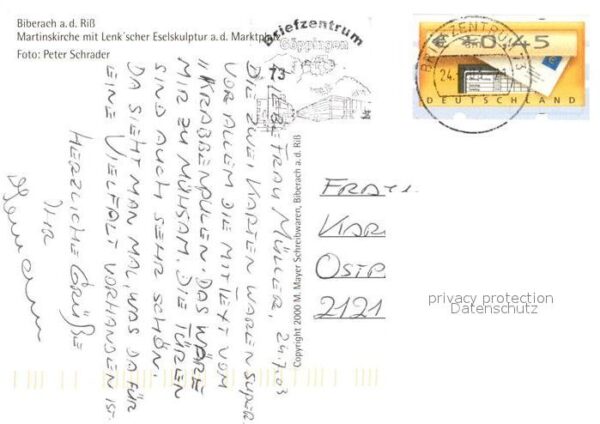 Biberach a.d. Riß
Martinskirche mit Lenk'scher Eselskulptur a.d. Marktplatz
Foto: Peter Schrader
Briefzentrum
Göppingen
73
BRIEFZENTRUM 73
24.
€ *0,45
DEUTSCHLAND
24.7.03
LIEBE FRAU MÜLLER,
DIE ZWEI KARTEN WAREN SUPER
VOR ALLEM DIE MIT TEXT VOM
"KRABBENPULEN. DAS WÄRE
MIR ZU MÜHSAM. DIE TÜREN
SIND AUCH SEHR SCHÖN.
DA SIEHT MAN MAL, WAS DA FÜR
EINE VIELFALT VORHANDEN IST.
HERZLICHE GRÜßE
IHR
Copyright 2000 M. Mayer Schreibwaren, Biberach a.d. Riß
FRAU
KAR
OSTP
2121
privacy protection
Datenschutz